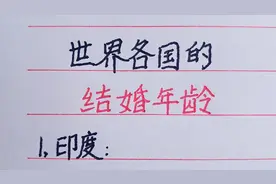 世界各国的
结婚年龄
1,印度: